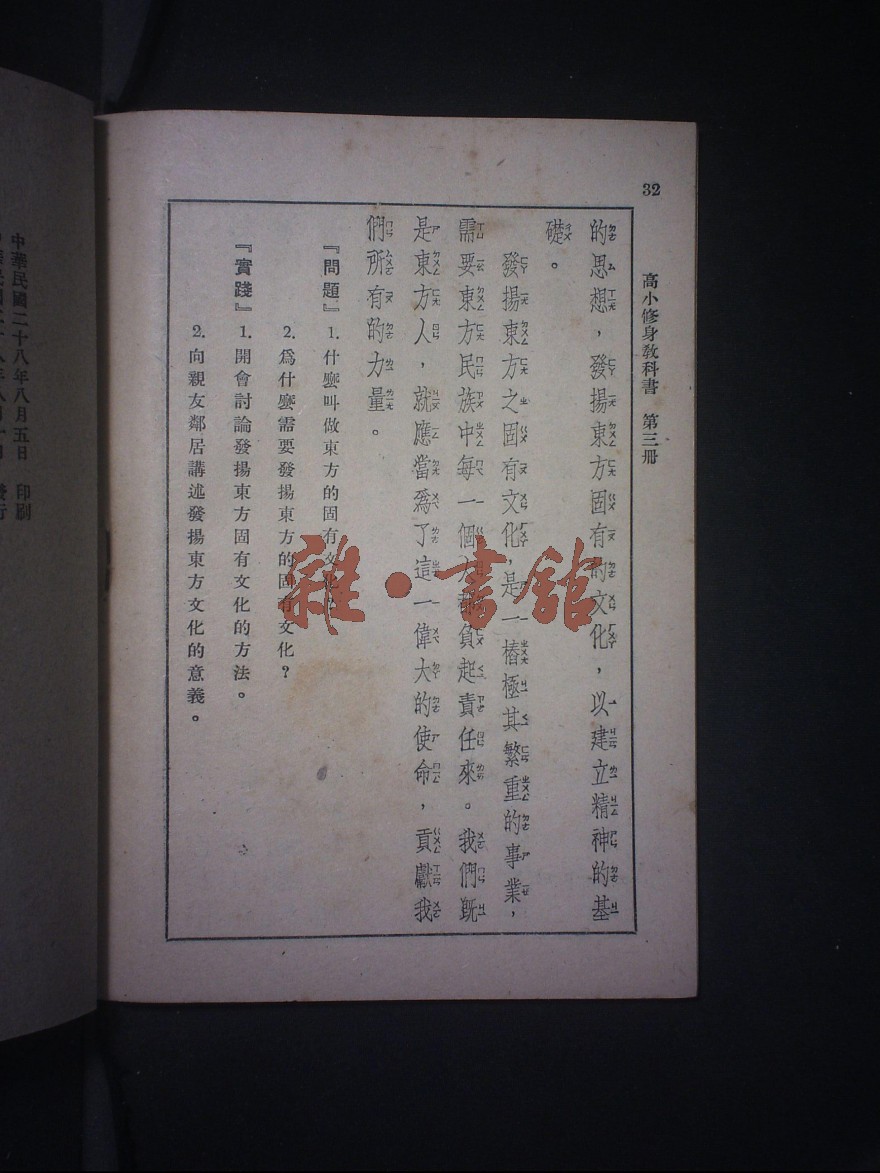 32
高小修身教科書　第三册
的思想，發揚東方固有的文化，以建立精神的基
礎。
發揚東方之固有文化，是一樁極其繁重的事業，
需要東方民族中每一個人都負起責任來。我們既
是東方人，就應當爲了這一偉大的使命，貢獻我
們所有的力量。
『問題』 1. 什麼叫做東方的固有文化
2. 爲什麼需要發揚東方的固有文化?
『實踐』 1. 開會討論發揚東方固有文化的方法。
2. 向親友鄰居講述發揚東方文化的意義。
中華民國二十八年八月五日　印刷
雜·書館